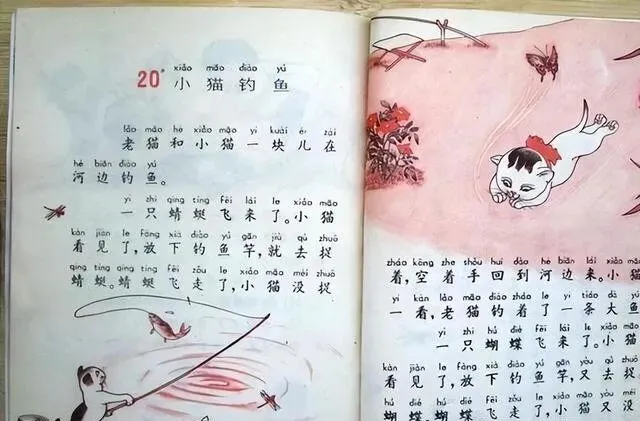 xiǎo māo diào yú
20* 小猫钓鱼
lǎo māo hé xiǎo māo yí kuài ér zài
老猫和小猫一块儿在
hé biān diào yú
河边钓鱼。
yì zhī qīng tíng fēi lái le xiǎo māo
一只蜻蜓飞来了。小猫
kàn jiàn le fàng xià diào yú gān jiù qù zhuō
看见了,放下钓鱼竿,就去捉
qīng tíng qīng tíng fēi zǒu le xiǎo māo méi zhuō
蜻蜓。蜻蜓飞走了,小猫没捉
zháo kōng zhe shǒu huí dào hé biān lái xiǎo māo
着,空着手回到河边来。小猫
yí kàn lǎo māo diào zháo le yì tiáo dà yú
一看,老猫钓着了一条大鱼
yì zhī hú dié fēi lái le xiǎo māo
一只蝴蝶飞来了。小猫
kàn jiàn le fàng xià diào yú gān yòu qù zhuō
看见了,放下钓鱼竿,又去捉
hú dié hú dié fēi zǒu le xiǎo māo yòu méi
蝴蝶。蝴蝶飞走了,小猫又没